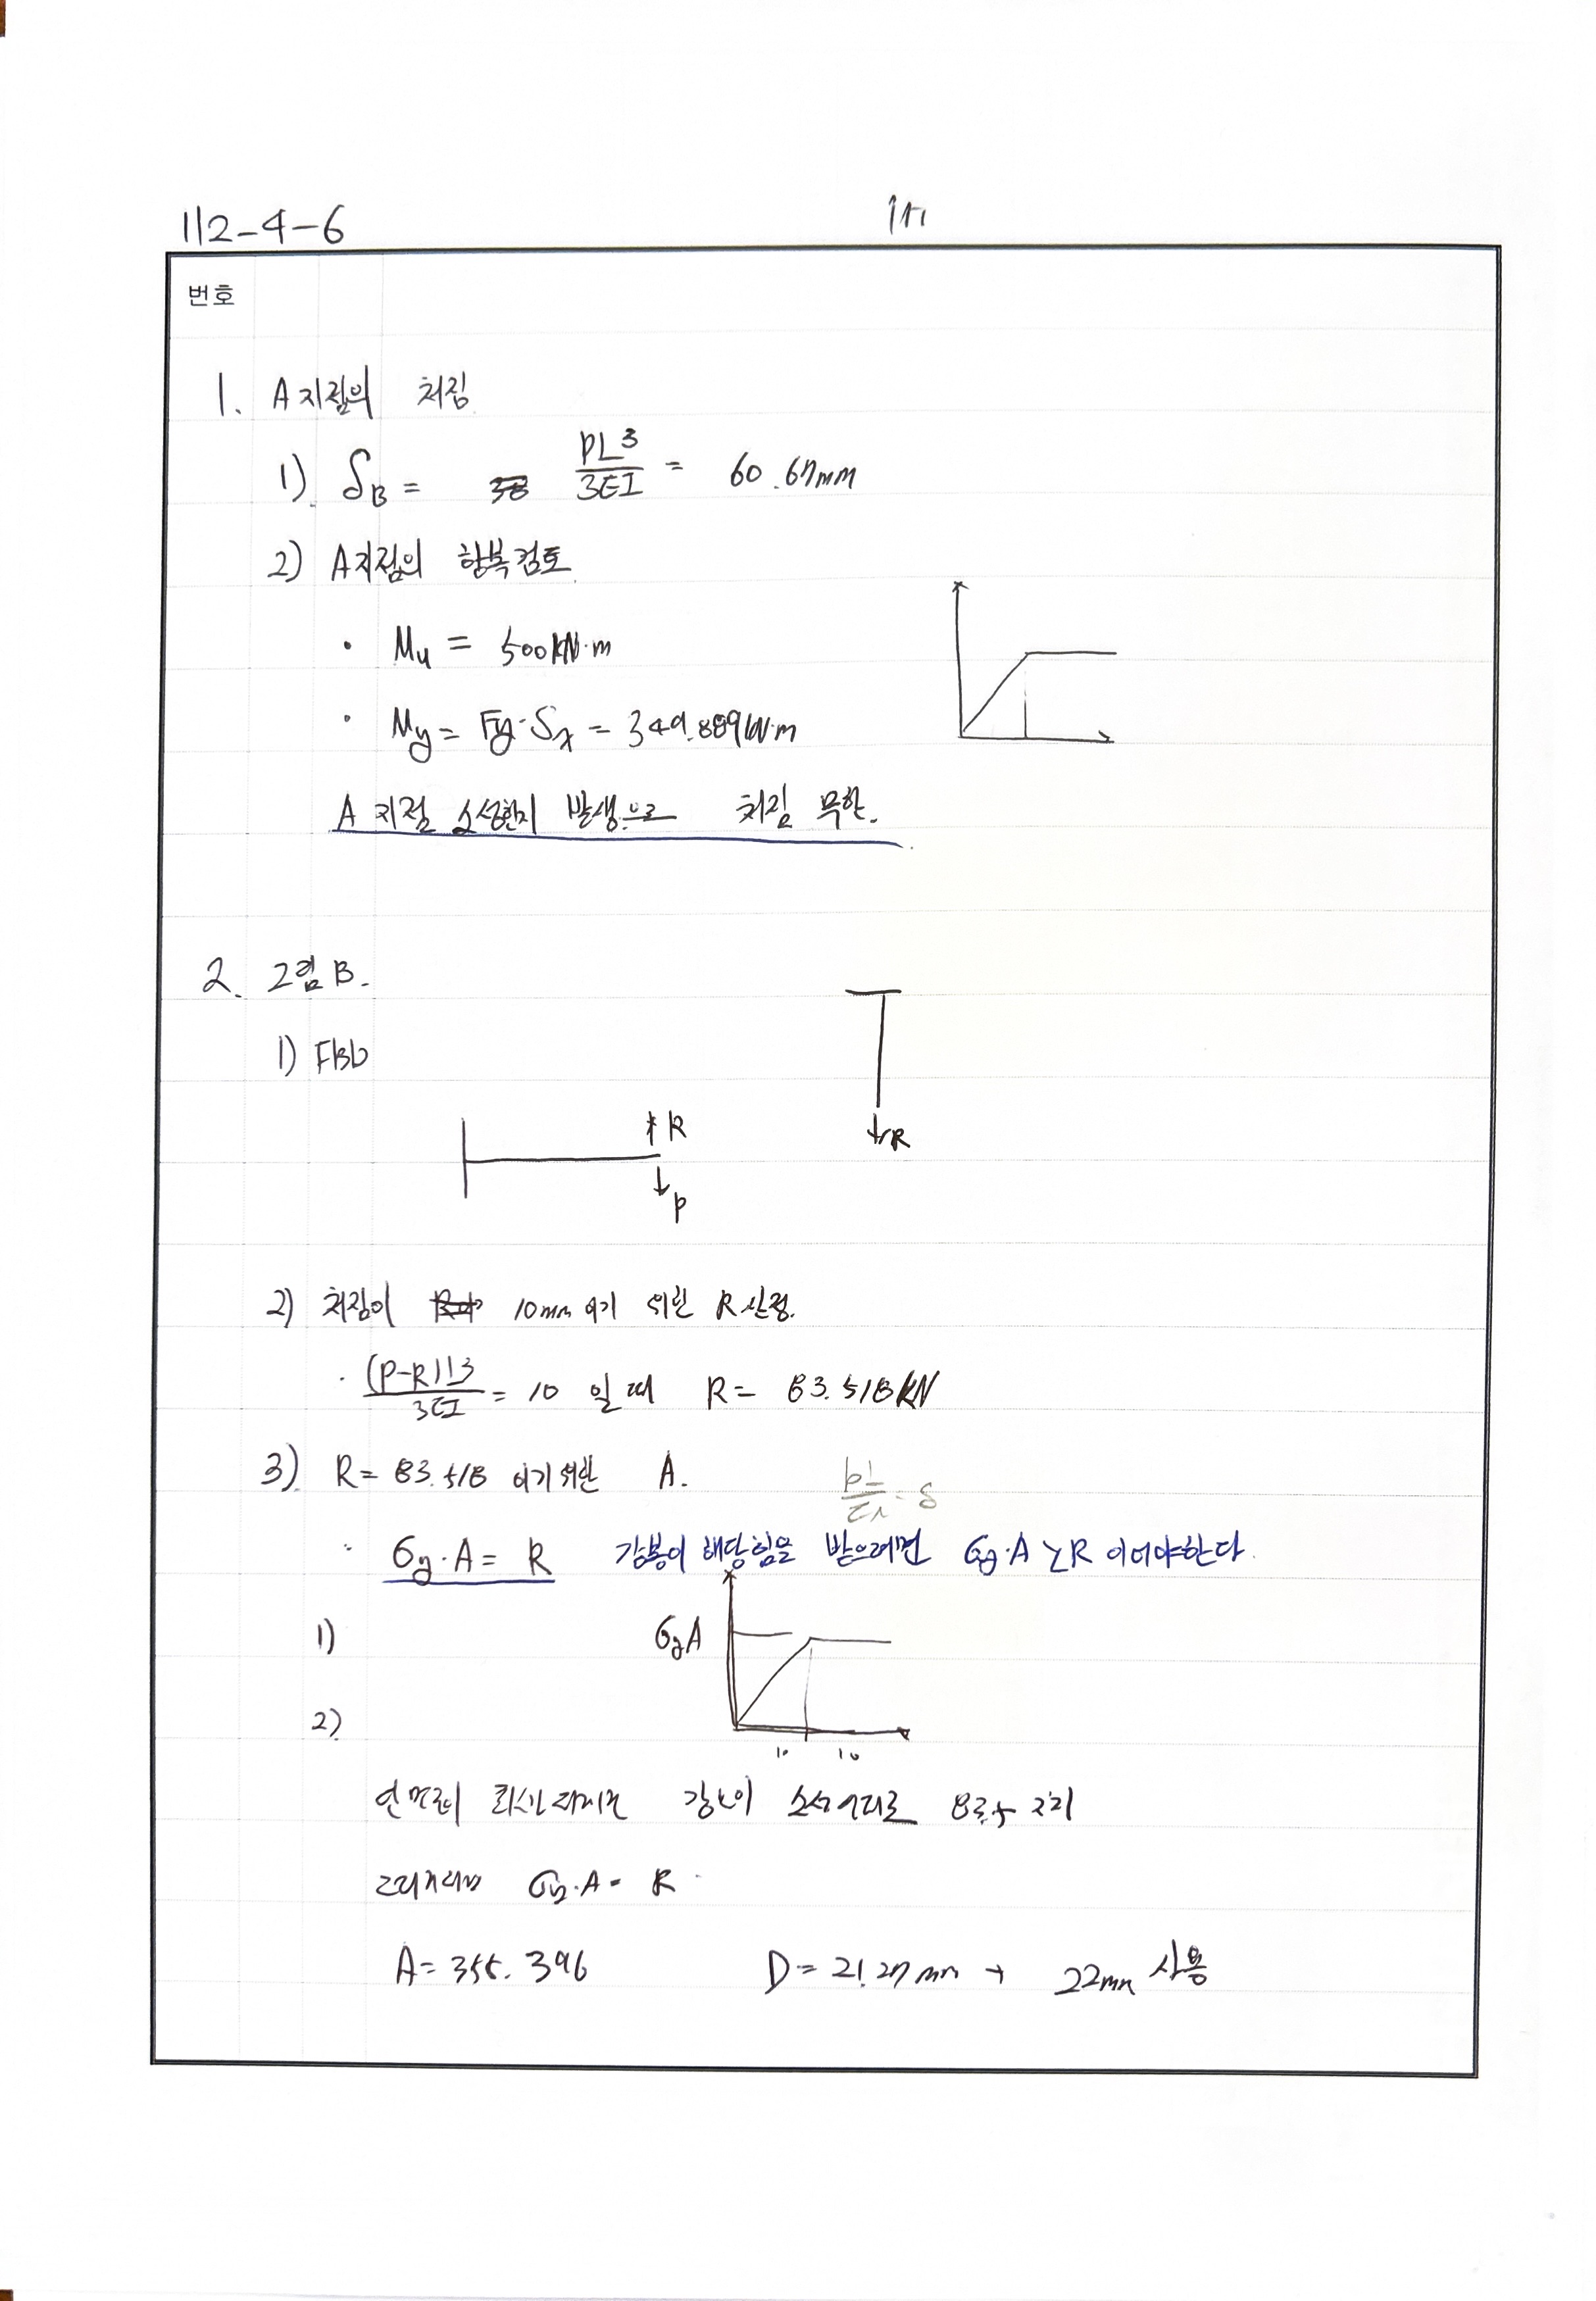 112-4-6
번호
1. A지점의 처짐
1) δB = PL³/3EI = 60.67mm
2) A지점의 항복검토
· Mu = 500kN·m
· My = Fy·Sx = 349.889kN·m
A 지점 소성힌지 발생으로 처짐 무한.
2. 그림 B.
1) FBD
R
R
P
2) 처짐이 10mm 이기 위한 R산정.
· (P-R)L³/3EI = 10 일 때 R = 83.518kN
3) R = 83.518 이기 위한 A.
· σy·A = R 강봉이 해당힘을 받으려면 σy·A ≥ R 이어야한다.
1) σyA
2)
10 10
σy·A = R
A = 355.396 D = 21.27mm → 22mm 사용